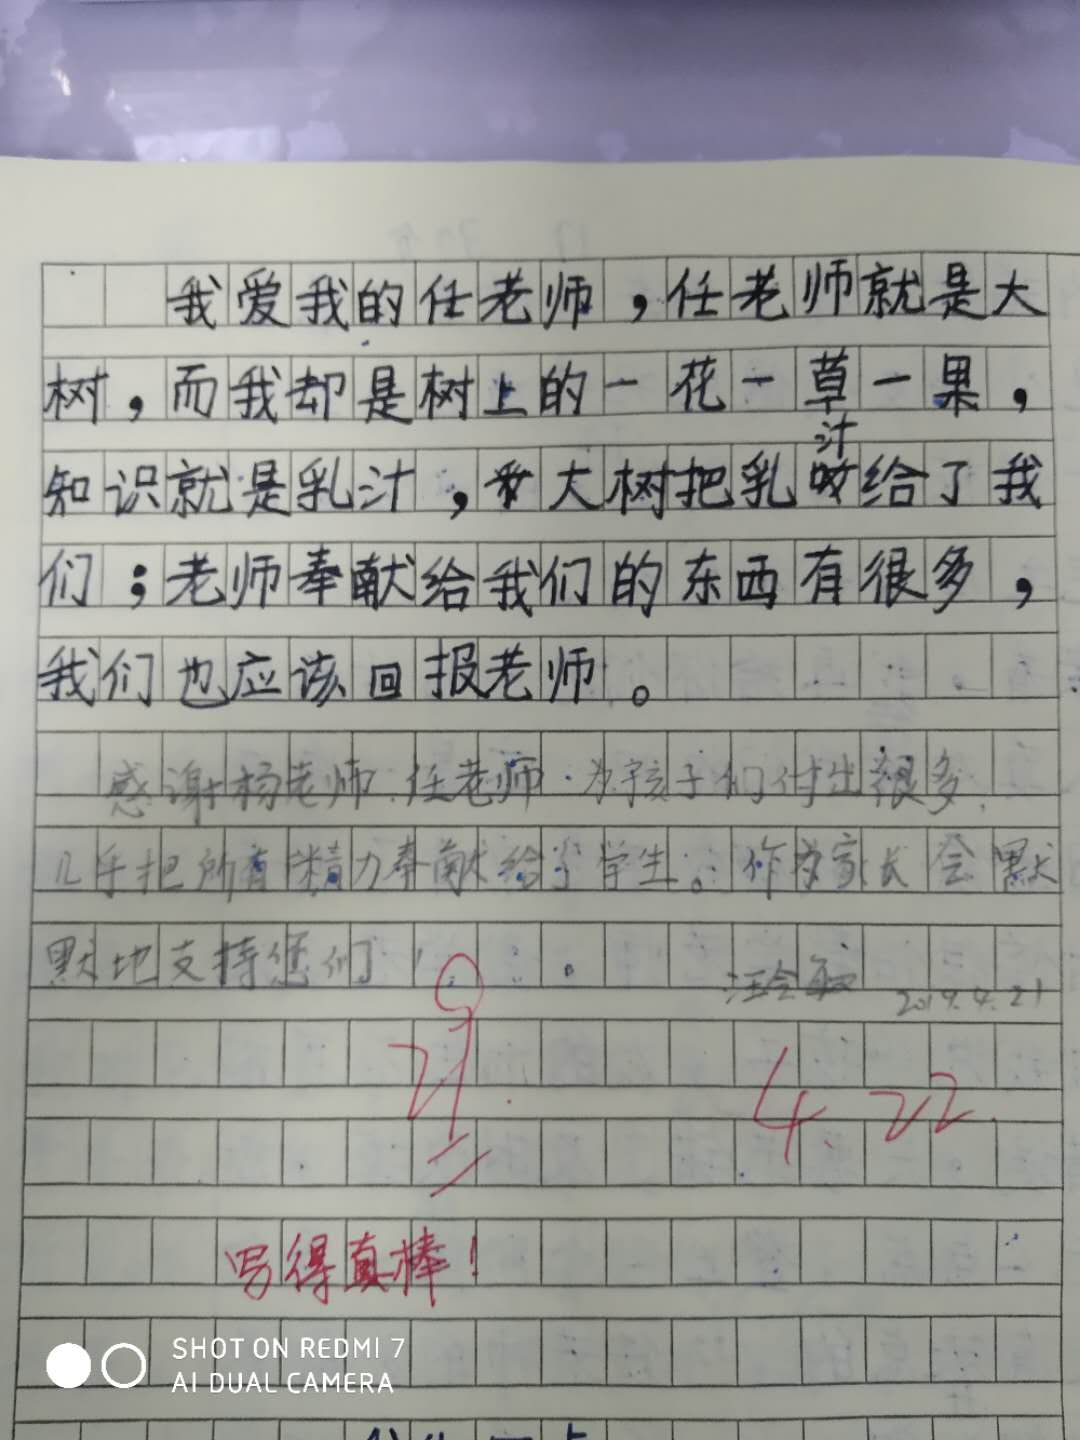 我爱我的任老师，任老师就是大
树，而我却是树上的一花一草一果，
汁
知识就是乳汁，大树把乳给了我
们；老师奉献给我们的东西有很多，
我们也应该回报老师。
感谢杨老师、任老师.为孩子们付出很多，
几乎把所有精力奉献给了学生。作为家长会默
默地支持您们！
2019.4.21
4.22
写得真棒！
SHOT ON REDMI 7
AI DUAL CAMERA